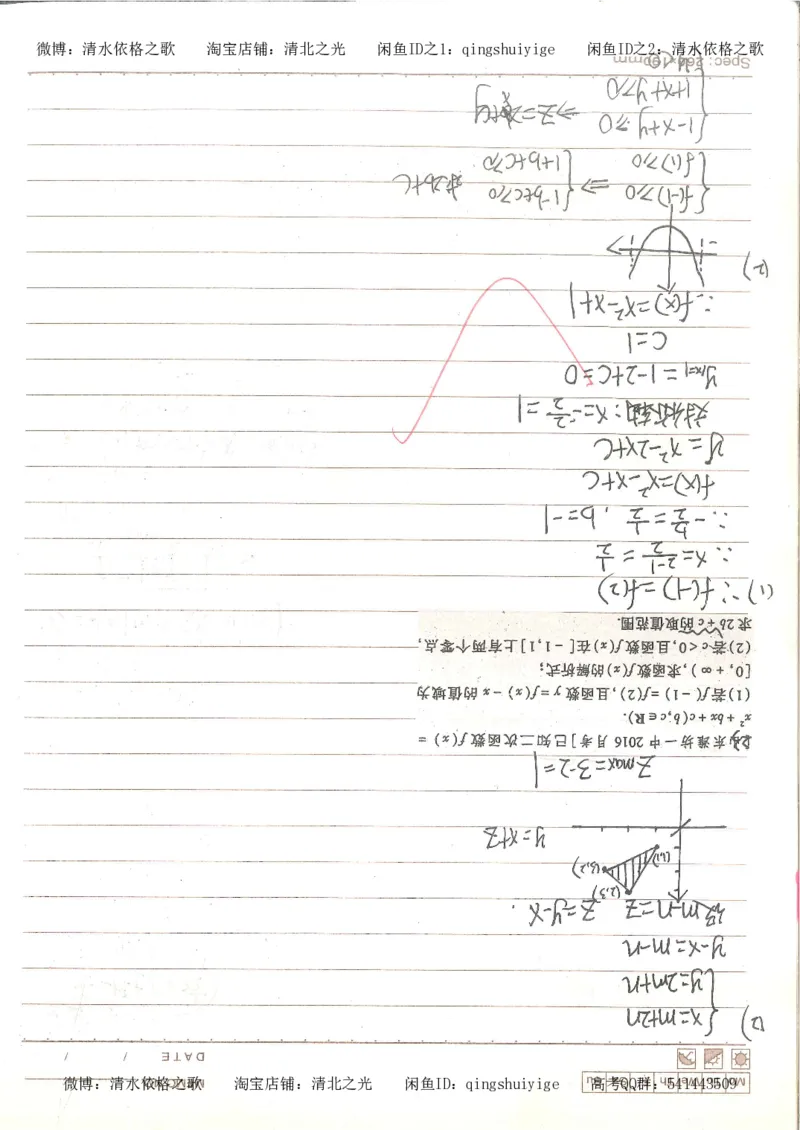 微博：清水依格之歌 淘宝店铺：清北之光 闲鱼ID之1：qingshuiyige 闲鱼ID之2：清水依格之歌
DATE / /
(2) { x=m+2n
y=2m+n
y-x=m-n
设m-n=z z=y-x.
(2,3)
(1,1) (3,2)
y=x+z
Zmax=3-2=1
东潍坊一中2016月考]已知二次函数f(x)=
x²+bx+c(b,c∈R).
(1)若f(-1)=f(2),且函数y=f(x)-x的值域为
[0,+∞),求函数f(x)的解析式;
(2)若c<0,且函数f(x)在[-1,1]上有两个零点,
求2b+c的取值范围.
(1)∵f(-1)=f(2)
∴x=2-1/2=1/2
∴-b/2=1/2,b=-1
f(x)=x²-x+c
y=x²-2x+c
对称轴:x=--2/2=1
y|x=1=1-2+c=0
c=1
∴f(x)=x²-x+1
(2)
{ f(-1)≥0 ⇒ { 1-b+c≥0 求2b+c
f(1)≥0 1+b+c≥0
{ 1-x+y≥0 ⇒ z=2x+y
1+x+y≥0
微博：清水依格之歌 淘宝店铺：清北之光 闲鱼ID：qingshuiyige 高考QQ群：541443509